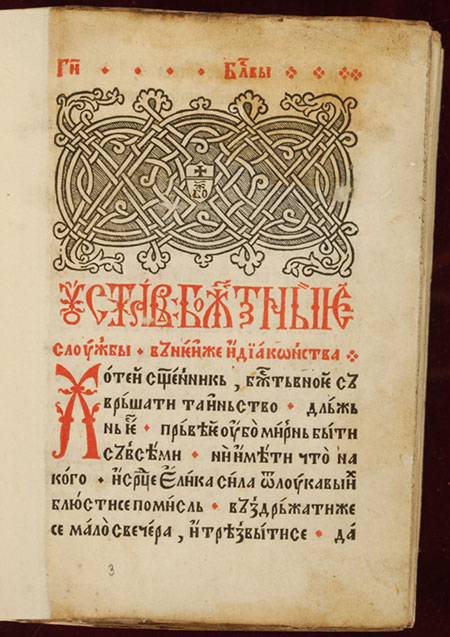 Гй҃ Бл҃вы
слоужбы · въ нѥиже и дїакѡнства
Хотеи сщ҃енникь , бж҃тьвноиѥ съ
врьшати таиньство · дльжь
нь ѥ · прьвѣѥ оубо мирнь быти
съ всѣми · нѝ имѣти что на
кого · и ср҃це ѥлика сила ѿ лоукавыих
блюсти се помисль · въздрьжати же
се мало с вечера , и трѣзвыти се · да
3